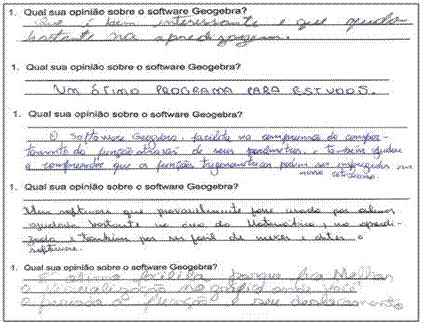 1. Qual sua opinião sobre o software Geogebra?
Que é bem interessante e que ajuda
bastante na aprendizagem.
1. Qual sua opinião sobre o software Geogebra?
UM ÓTIMO PROGRAMA PARA ESTUDOS.
1. Qual sua opinião sobre o software Geogebra?
O software Geogebra, facilita na compreensão do compor-
tamento da função através de seus parâmetros, e também ajudou
a compreender que as funções trigonométricas podem ser empregadas em
nosso cotidiano.
1. Qual sua opinião sobre o software Geogebra?
Um software que provavelmente fosse usado por alunos
ajudaria bastante na área da Matemática, no apredi-
zado e também por ser fácil de mexer e obter o
software.
1. Qual sua opinião sobre o software Geogebra?
É ótimo facilita porque fica Melhor
a visualização no gráfico onde você
a função e seu deslocamento